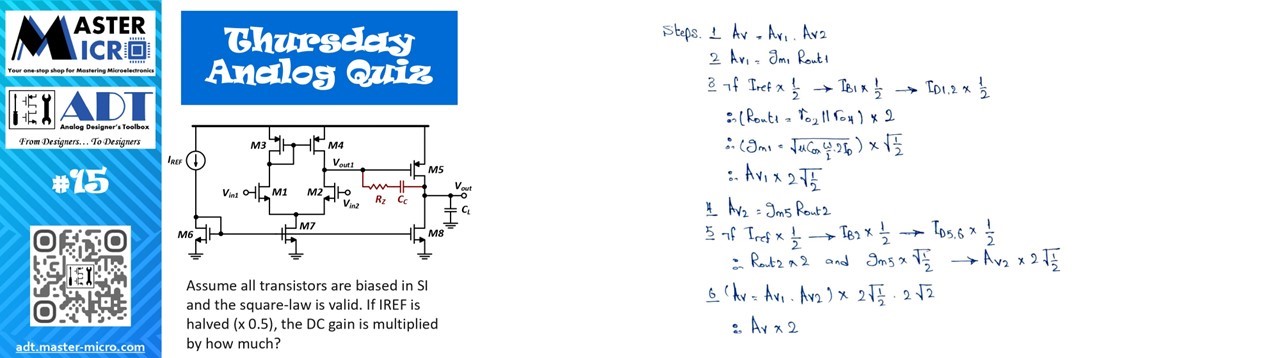 MASTER
MICRO
Your one-stop shop for Mastering Microelectronics
ADT
Analog Designer's Toolbox
From Designers... To Designers
#15
adt.master-micro.com
Thursday
Analog Quiz
IREF
M3
M4
Vout1
M5
Vin1
M1
M2
Vin2
RZ
CC
Vout
CL
M6
M7
M8
Assume all transistors are biased in SI
and the square-law is valid. If IREF is
halved (x 0.5), the DC gain is multiplied
by how much?
Steps. 1 Av = Av1 . Av2
2 Av1 = gm1 Rout1
3 if Iref x 1/2 → IB1 x 1/2 → ID1,2 x 1/2
∴ (Rout1 = ro2 || ro4) x 2
∴ (gm1 = √μCox W/L . 2ID) x √1/2
∴ Av1 x 2√1/2
4 Av2 = gm5 Rout2
5 if Iref x 1/2 → IB2 x 1/2 → ID5,6 x 1/2
∴ Rout2 x 2 and gm5 x √1/2 → Av2 x 2√1/2
6 (Av = Av1 . Av2) x 2√1/2 . 2√2
∴ Av x 2